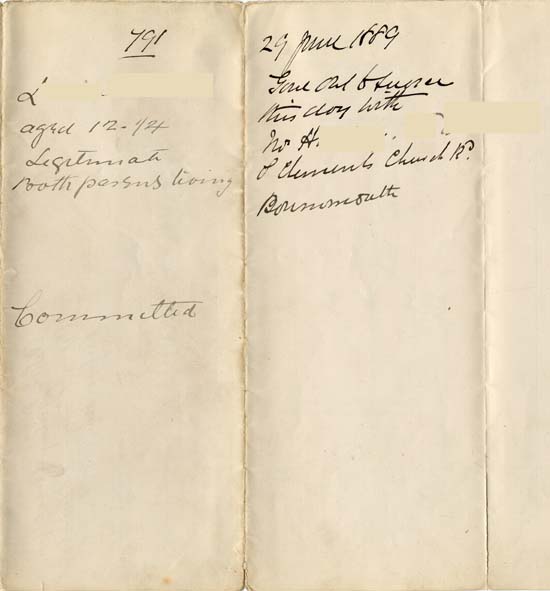 791
L
aged 12-1/4
Legitimate
Both parents living
Committed
29 June 1889
Gone out to service
this day with
Mr H.
St Clements Church Rd.
Bournemouth